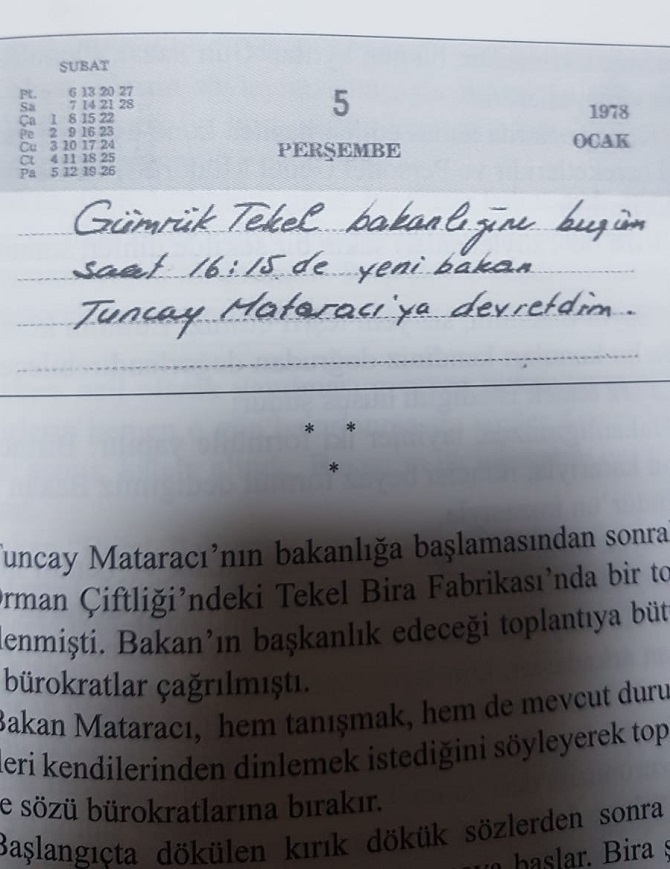 ŞUBAT
Pt. 6 13 20 27
Sa 7 14 21 28
Ça 1 8 15 22
Pe 2 9 16 23
Cu 3 10 17 24
Ct 4 11 18 25
Pa 5 12 19 26
5
PERŞEMBE
1978
OCAK
Gümrük Tekel bakanlığını bugün
saat 16:15 de yeni bakan
Tuncay Mataracı'ya devretdim.
* *
*
Tuncay Mataracı'nın bakanlığa başlamasından sonra
Orman Çiftliği'ndeki Tekel Bira Fabrikası'nda bir to
lenmişti. Bakan'ın başkanlık edeceği toplantıya büt
bürokratlar çağrılmıştı.
Bakan Mataracı, hem tanışmak, hem de mevcut duru
leri kendilerinden dinlemek istediğini söyleyerek top
e sözü bürokratlarına bırakır.
Başlangıçta dökülen kırık dökük sözlerden sonra
başlar. Bira ş